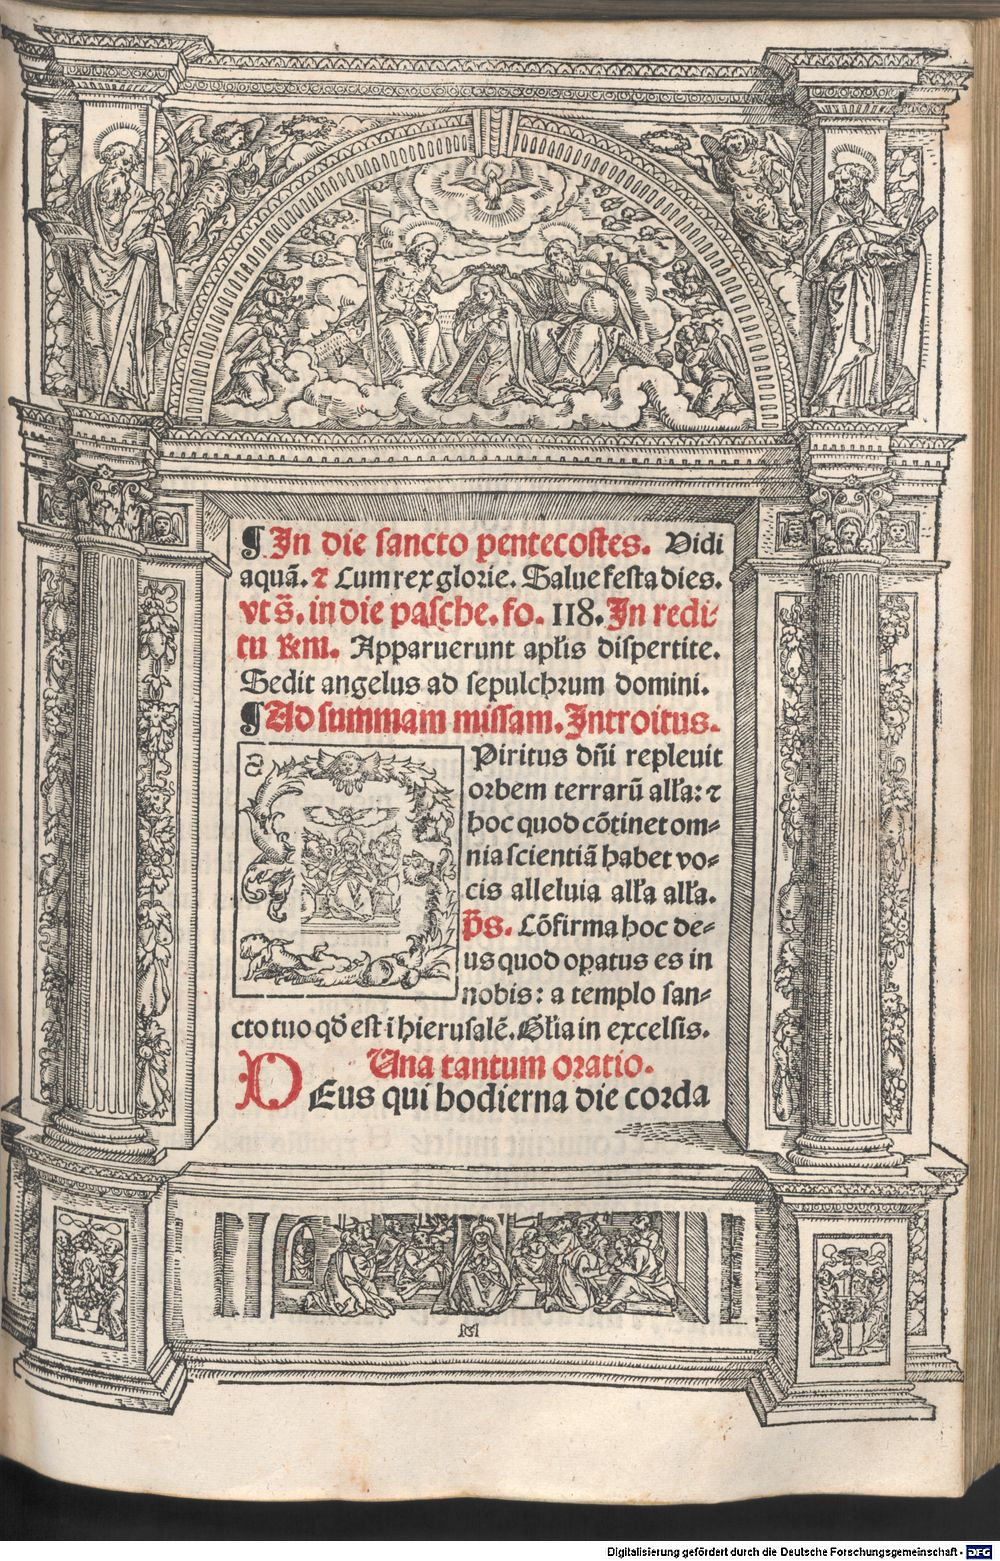 ¶ In die sancto pentecostes. Vidi
aquã. ⁊ Cum rex glorie. Salue festa dies.
vt s̃. in die pasche. fo. 118. In redi⸗
tu Rm̃. Apparuerunt apl̃is dispertite.
Sedit angelus ad sepulchrum domini.
¶ Ad summam missam. Introitus.
Piritus dñi repleuit
orbem terrarũ all̃a: ⁊
hoc quod cõtinet om⸗
nia scientiã habet vo⸗
cis alleluia all̃a all̃a.
p̃s. Cõfirma hoc de⸗
us quod opatus es in
nobis: a templo san⸗
cto tuo qđ est ĩ hierusalẽ. Gl̃ia in excelsis.
Una tantum oratio.
DEus qui hodierna die corda
Digitalisierung gefördert durch die Deutsche Forschungsgemeinschaft - DFG